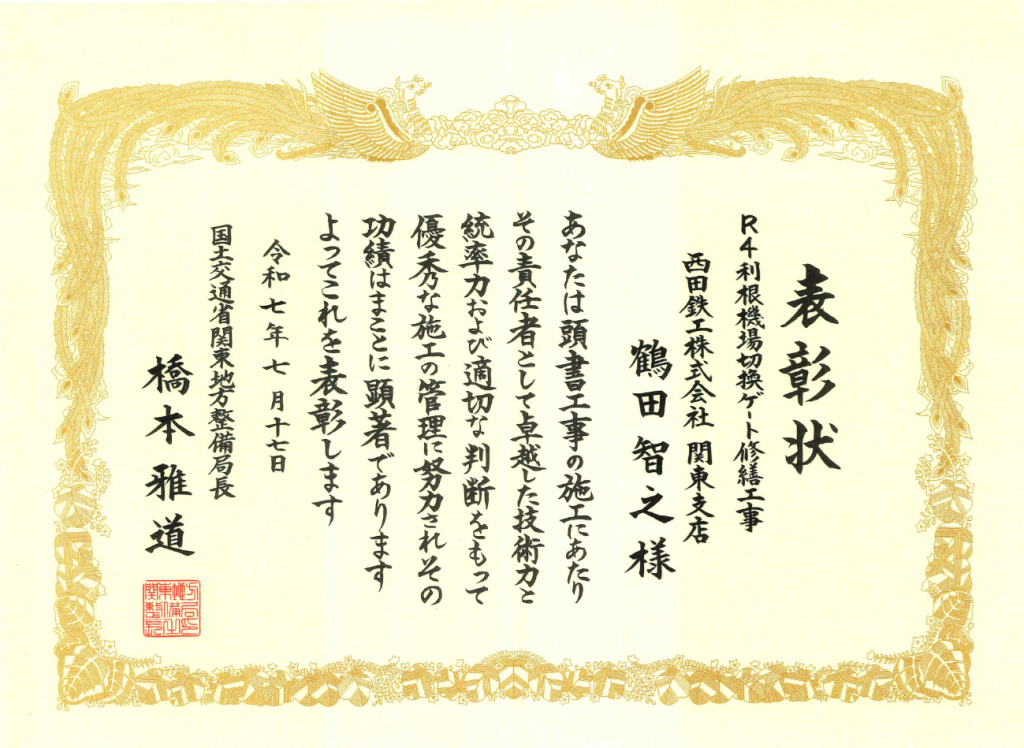 表彰状
R4利根機場切換ゲート修繕工事
西田鉄工株式会社 関東支店
鶴田智之様
あなたは頭書工事の施工にあたり
その責任者として卓越した技術力と
統率力および適切な判断をもって
優秀な施工の管理に努力されその
功績はまことに顕著であります
よってこれを表彰します
令和七年七月十七日
国土交通省関東地方整備局長
橋本雅道